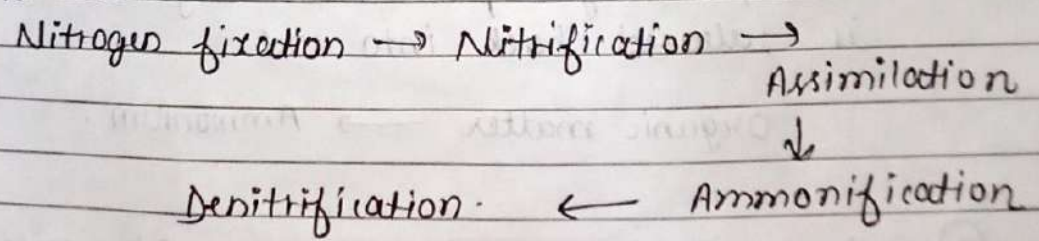 Nitrogen fixation → Nitrification →
Assimilation
↓
Denitrification. ← Ammonification